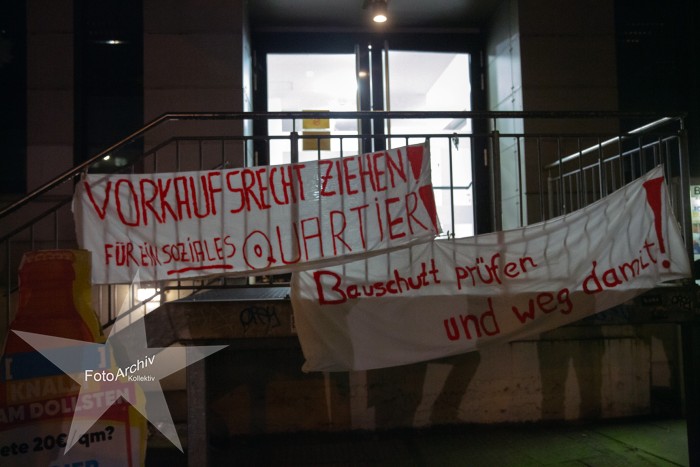 VORKAUFSRECHT ZIEHEN!
FÜR EIN SOZIALES QUARTIER!
Bauschutt prüfen
und weg damit!
FotoArchiv
Kollektiv
KNALL
AM DOLLSTEN
ete 20€/qm?